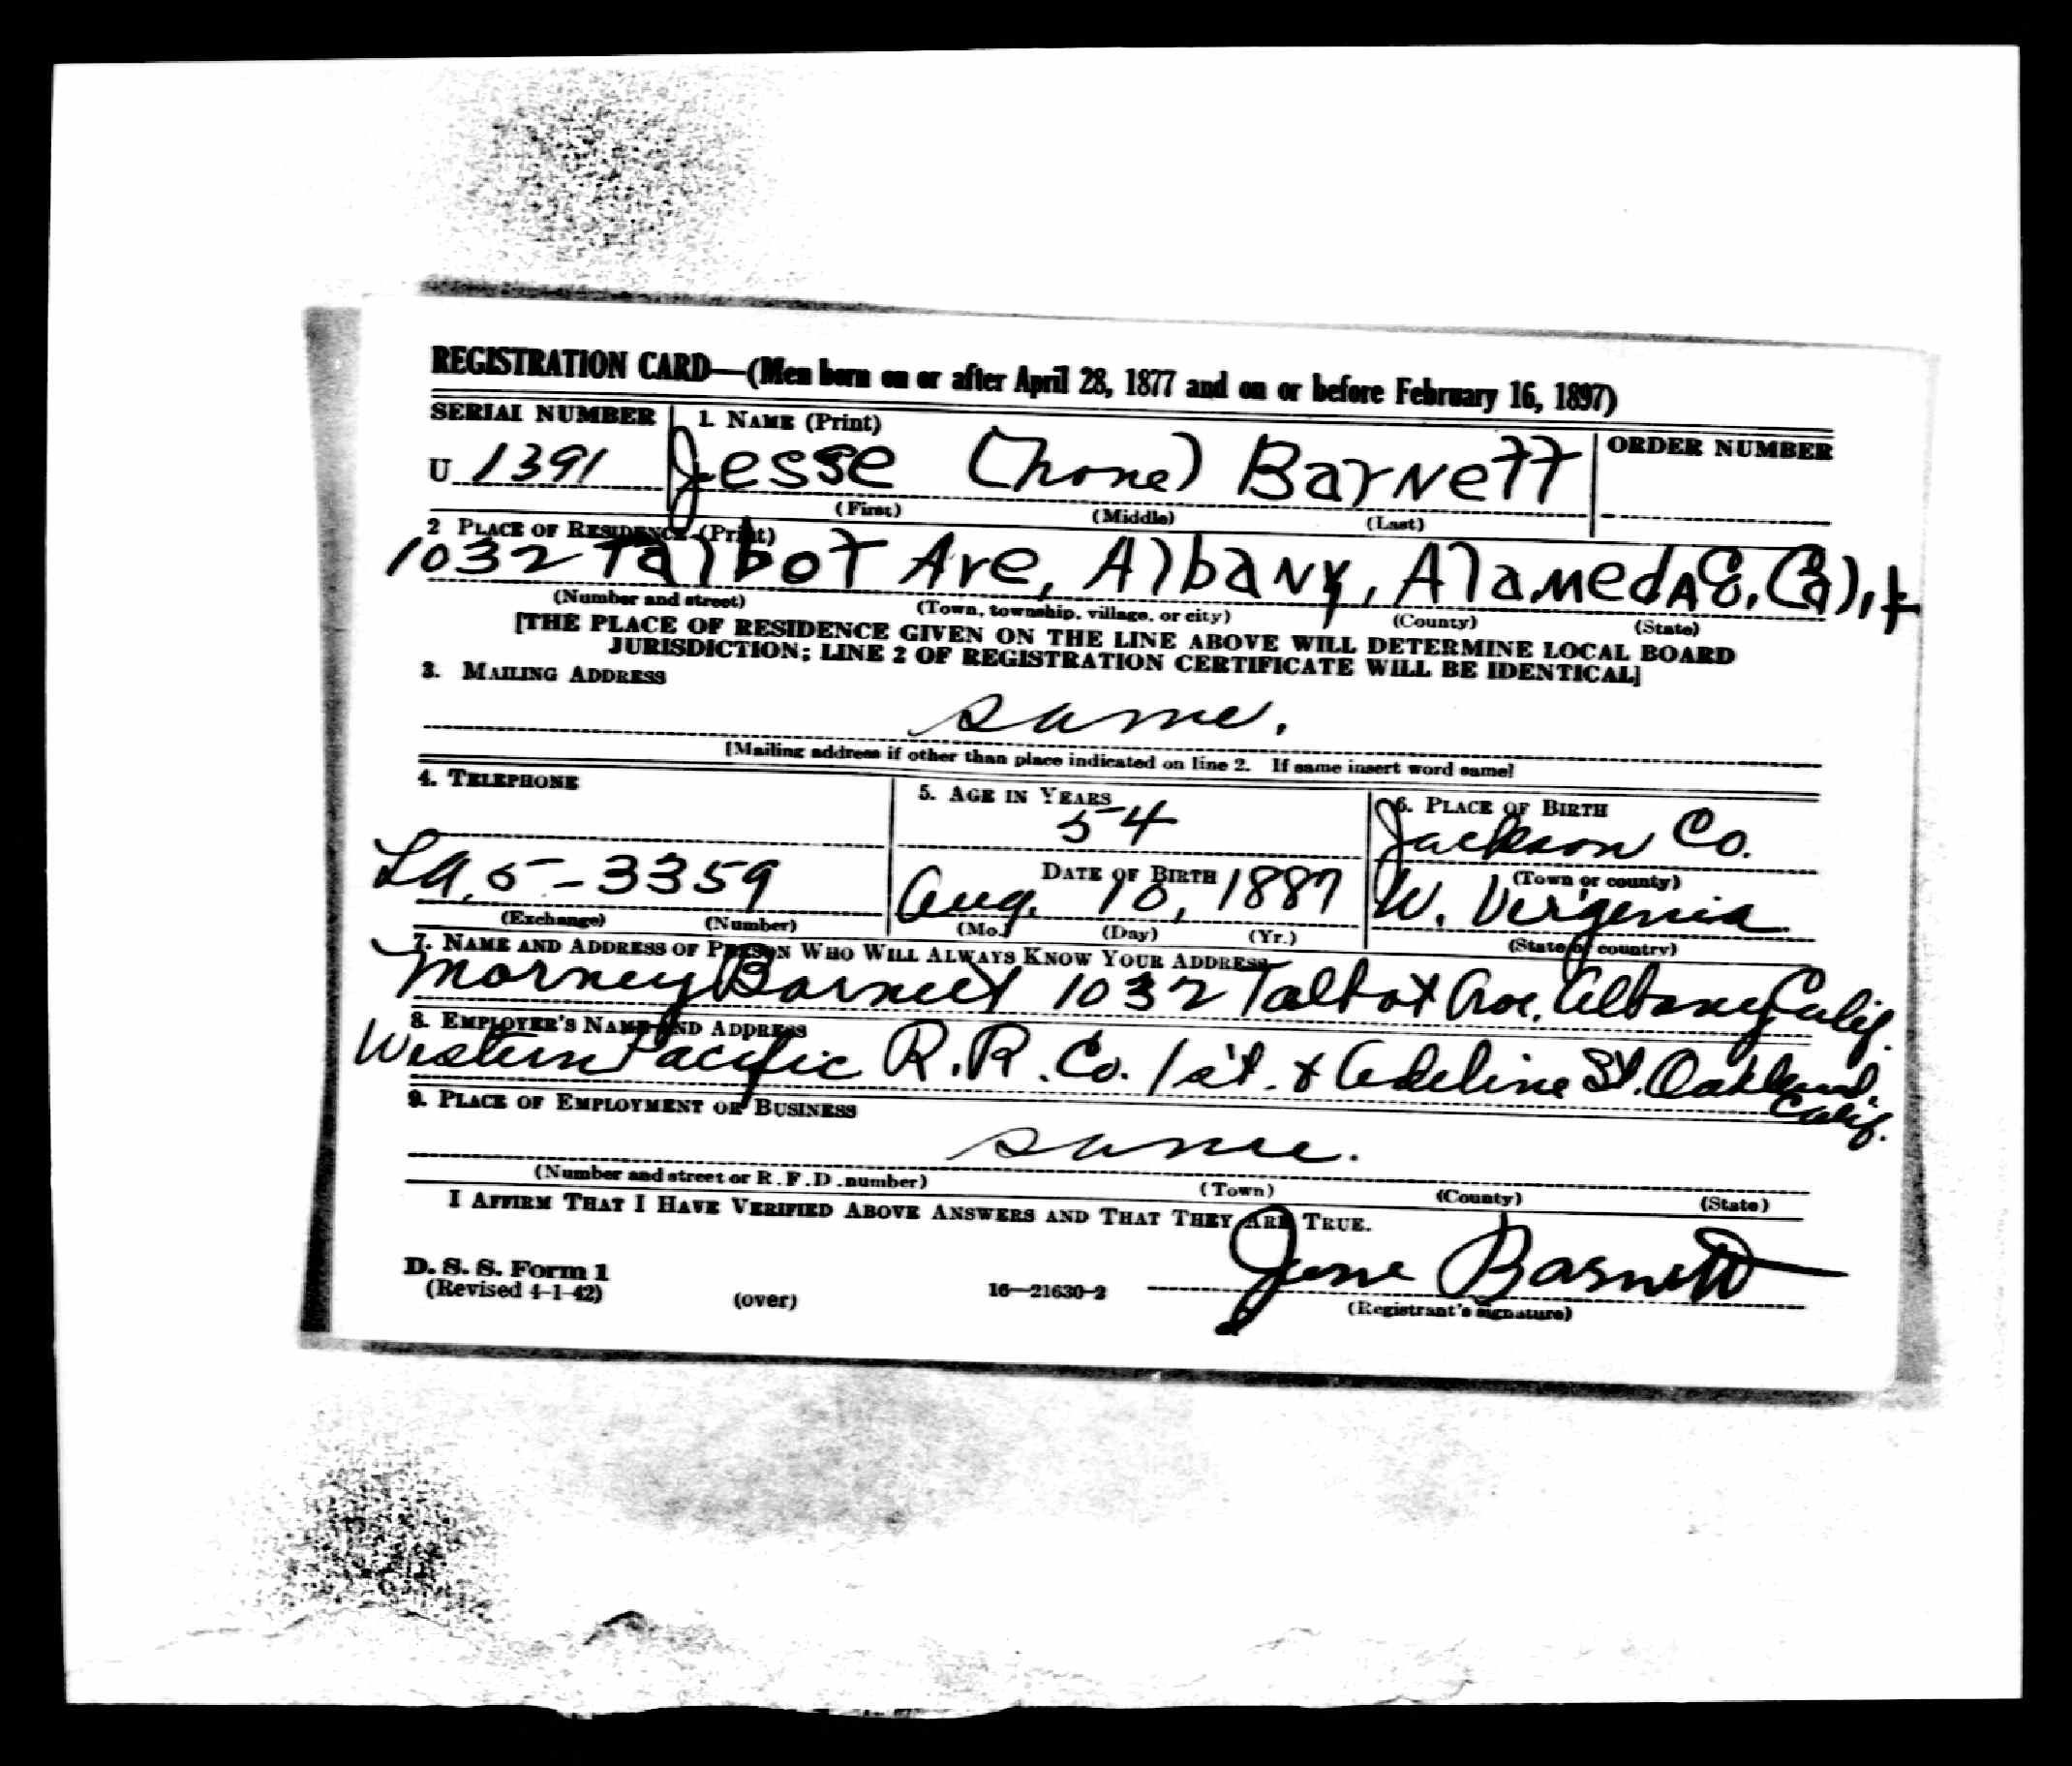 REGISTRATION CARD—(Men born on or after April 28, 1877 and on or before February 16, 1897)
SERIAL NUMBER 1. NAME (Print) ORDER NUMBER
U 1391 Jesse (none) Barnett
(First) (Middle) (Last)
2 PLACE OF RESIDENCE (Print)
1032 Talbot Ave, Albany, Alameda Co. Calif
(Number and street) (Town, township, village, or city) (County) (State)
[THE PLACE OF RESIDENCE GIVEN ON THE LINE ABOVE WILL DETERMINE LOCAL BOARD
JURISDICTION; LINE 2 OF REGISTRATION CERTIFICATE WILL BE IDENTICAL]
3. MAILING ADDRESS
same.
[Mailing address if other than place indicated on line 2. If same insert word same]
4. TELEPHONE 5. AGE IN YEARS 6. PLACE OF BIRTH
54 Jackson Co.
DATE OF BIRTH (Town or county)
La, 5-3359 Aug. 10, 1887 W. Virginia
(Exchange) (Number) (Mo.) (Day) (Yr.) (State or country)
7. NAME AND ADDRESS OF PERSON WHO WILL ALWAYS KNOW YOUR ADDRESS
Morney Barnett 1032 Talbot Ave. Albany Calif.
8. EMPLOYER'S NAME AND ADDRESS
Western Pacific R.R. Co. 1st. & Adeline St. Oakland
Calif.
9. PLACE OF EMPLOYMENT OR BUSINESS
same.
(Number and street or R.F.D. number) (Town) (County) (State)
I AFFIRM THAT I HAVE VERIFIED ABOVE ANSWERS AND THAT THEY ARE TRUE.
D. S. S. Form 1
(Revised 4-1-42) (over) 16—21630-2 Jesse Barnett
(Registrant's signature)